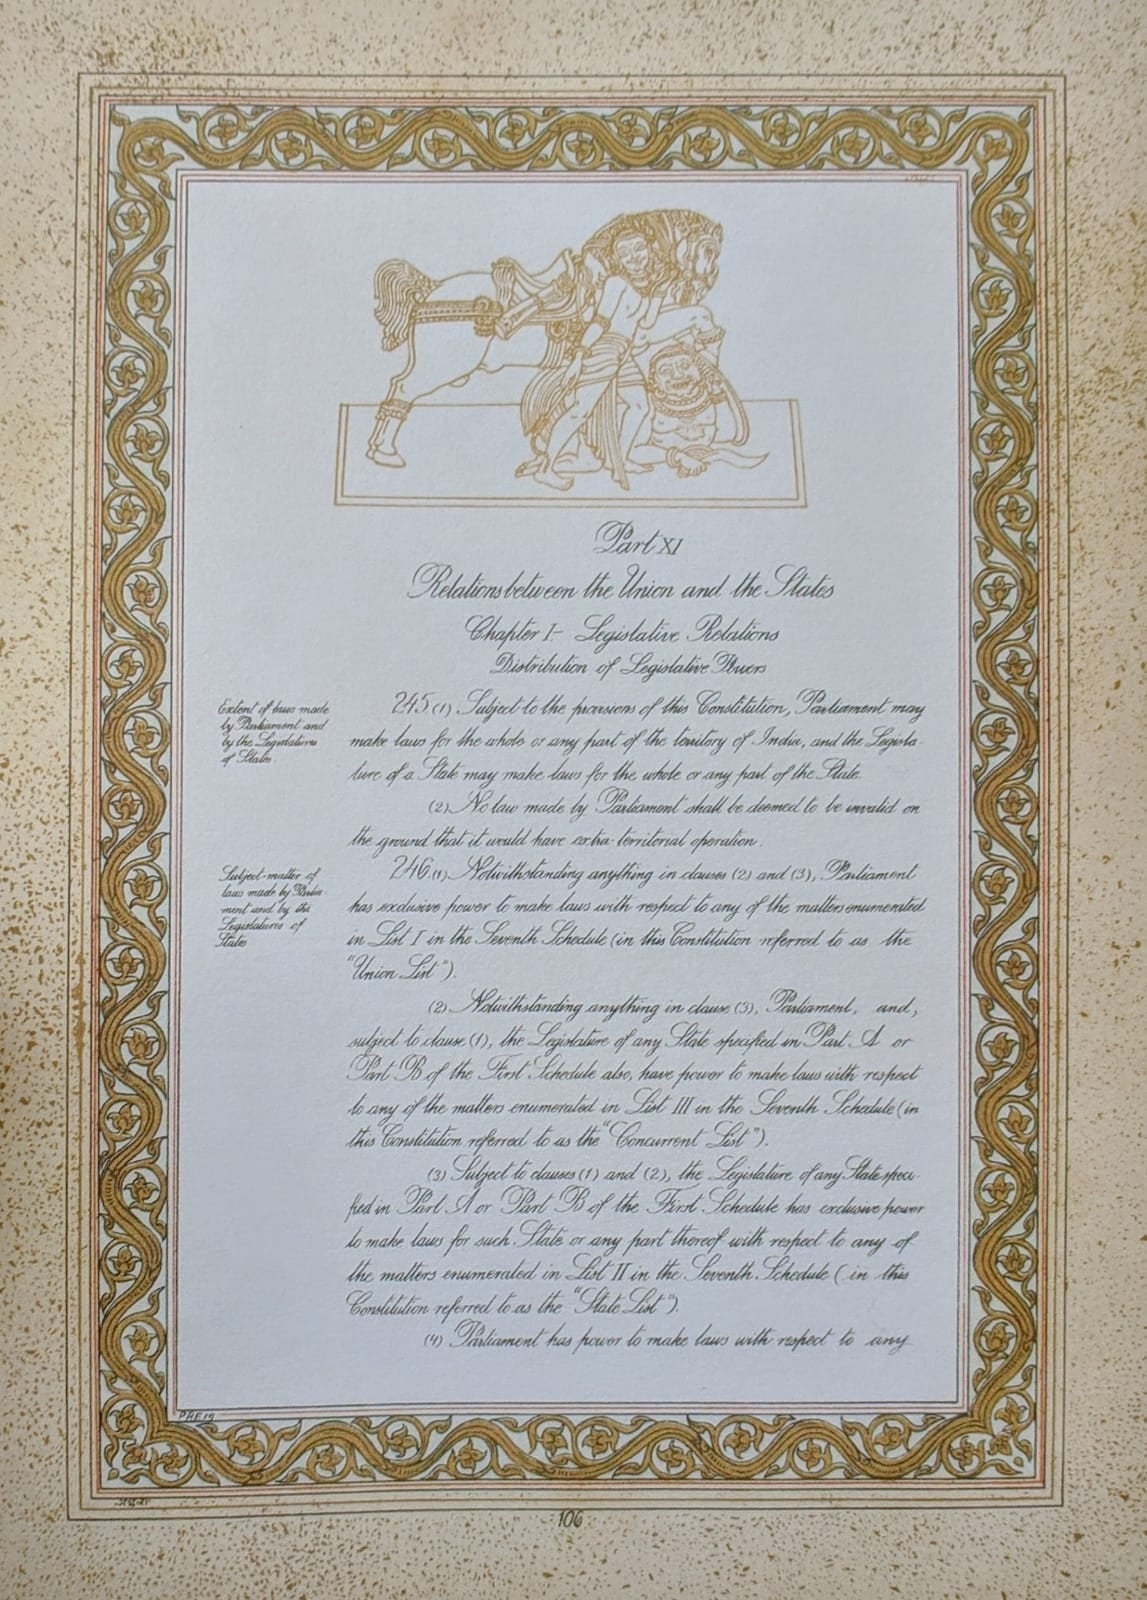 Part XI
Relations between the Union and the States
Chapter I- Legislative Relations
Distribution of Legislative Powers
Extent of laws made
by Parliament and
by the Legislatures
of States
245.(1) Subject to the provisions of this Constitution, Parliament may
make laws for the whole or any part of the territory of India, and the Legisla-
ture of a State may make laws for the whole or any part of the State.
(2) No law made by Parliament shall be deemed to be invalid on
the ground that it would have extra-territorial operation.
Subject-matter of
laws made by Parlia-
ment and by the
Legislatures of
States
246.(1) Notwithstanding anything in clauses (2) and (3), Parliament
has exclusive power to make laws with respect to any of the matters enumerated
in List I in the Seventh Schedule (in this Constitution referred to as the
"Union List").
(2) Notwithstanding anything in clause (3), Parliament, and,
subject to clause (1), the Legislature of any State specified in Part A or
Part B of the First Schedule also, have power to make laws with respect
to any of the matters enumerated in List III in the Seventh Schedule (in
this Constitution referred to as the "Concurrent List").
(3) Subject to clauses (1) and (2), the Legislature of any State speci-
fied in Part A or Part B of the First Schedule has exclusive power
to make laws for such State or any part thereof with respect to any of
the matters enumerated in List II in the Seventh Schedule (in this
Constitution referred to as the "State List").
(4) Parliament has power to make laws with respect to any
106